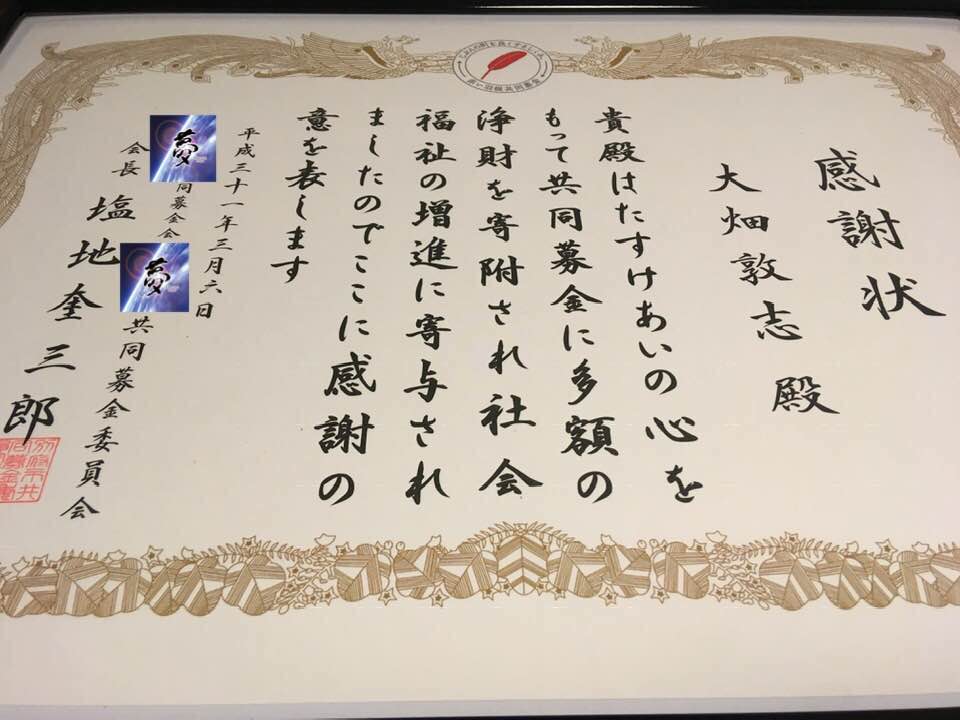 じぶんの町を良くするしくみ
赤い羽根共同募金
感謝状
大畑敦志 殿
貴殿はたすけあいの心を
もって共同募金に多額の
浄財を寄附され社会
福祉の増進に寄与され
ましたのでここに感謝の
意を表します
平成三十一年三月六日
夢同募金会
夢共同募金委員会
会長 塩地奎三郎